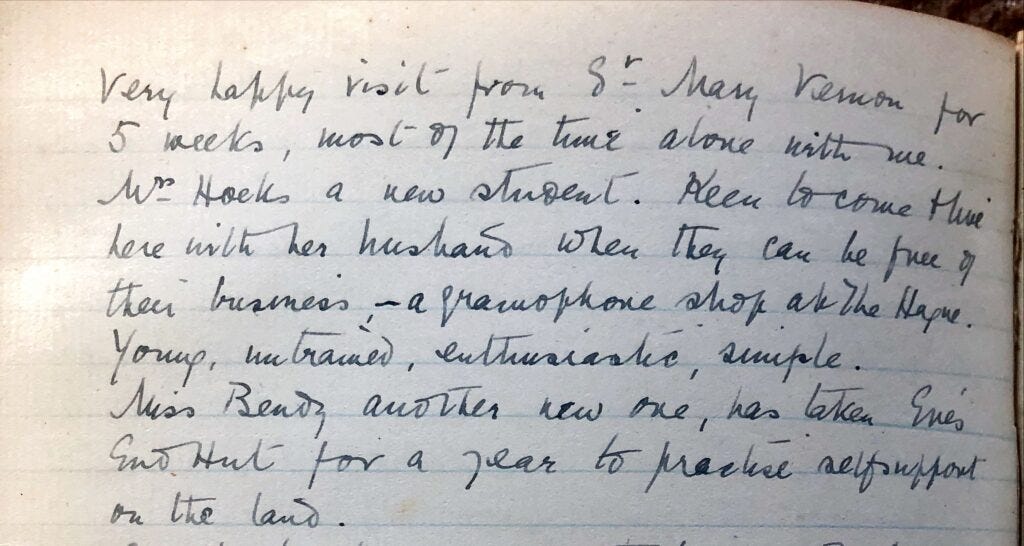 Very happy visit from Sr Mary Vernon for
5 weeks, most of the time alone with me.
Mrs Hoeks a new student. Keen to come & live
here with her husband when they can be free of
their business, – a gramophone shop at The Hague.
Young, untrained, enthusiastic, simple.
Miss Bendy another new one, has taken Eve's
End Hut for a year to practise selfsupport
on the land.